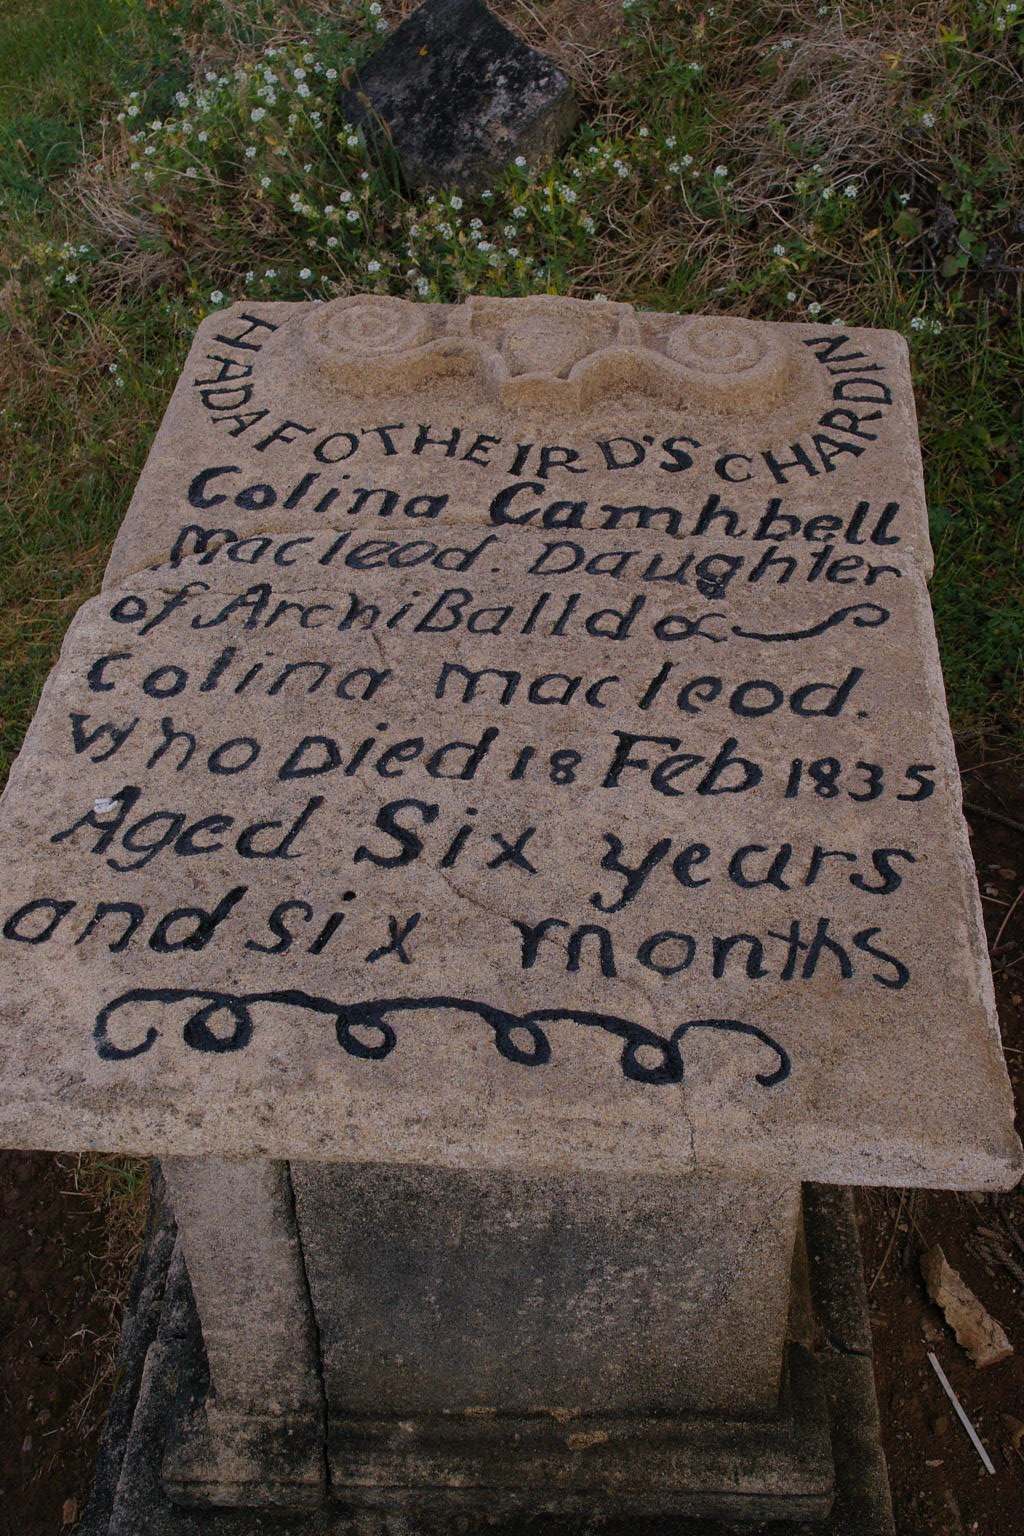 HADAFOTHEIRD'S CHARDIN
Colina Camhbell
macleod. Daughter
of ArchiBalld &
colina macleod.
Who Died 18 Feb 1835
Aged Six years
and six months